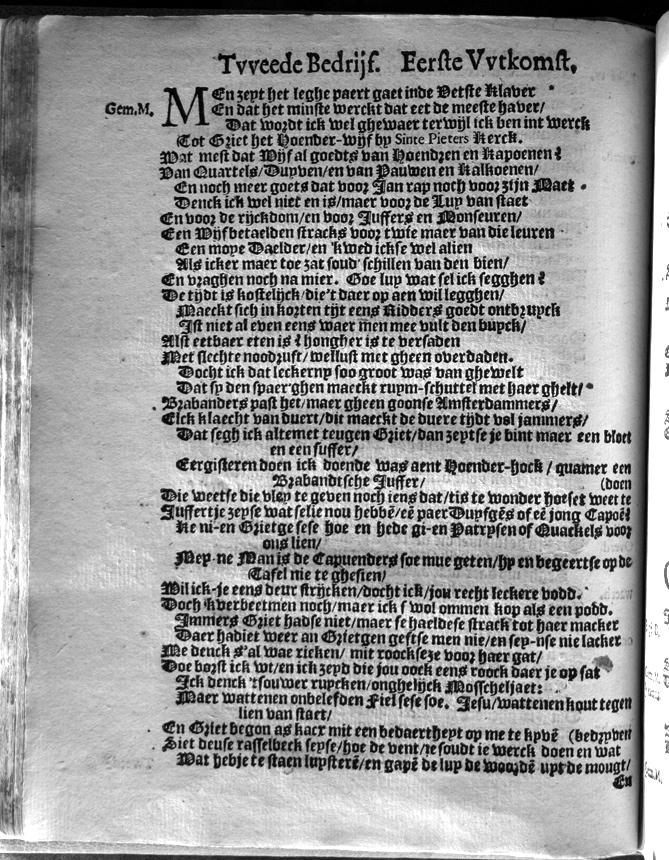 Tvveede Bedrijf. Eerste Vvtkomst.
Gem.M. MEn zeyt het leghe paert gaet inde Vetste Klaver
En dat het minste werckt dat eet de meeste haver/
Dat wordt ick wel ghewaer terwijl ick ben int werck
Tot Griet het Hoender-wijf by Sinte Pieters Kerck.
Wat mest dat Wijf al goedts van Hoendren en Kapoenen?
Van Quartels/Duyven/en van Pauwen en Kalkoenen/
En noch meer goets dat voor Jan rap noch voor zijn Maet
Denck ick wel niet en is/maer voor de Luy van staet
En voor de rijckdom/en voor Juffers en Monseuren/
Een Wijf betaelden stracks voor twie maer van die leuren
Een moye Daelder/en 'kwed ickse wel alien
Als icker maer toe zat soud' schillen van den bien/
En vraghen noch na mier. Goe luy wat sel ick segghen?
De tijdt is kostelijck/die't daer op aen wil legghen/
Maeckt sich in korten tijt eens Ridders goedt ontbruyck
Ist niet al even eens waer men mee vult den buyck/
Alst eetbaer eten is? hongher is te versaden
Met slechte noodruft/wellust met gheen overdaden.
Docht ick dat leckerny soo groot was van ghewelt
Dat sy den spaer'ghen maeckt ruym-schuttel met haer ghelt/
Brabanders past het/maer gheen goonse Amsterdammers/
Elck klaecht van duert/dit maeckt de duere tijdt vol jammers/
Dat segh ick altemet teugen Griet/dan zeytse je bint maer een bloet
en een suffer/
Eergisteren doen ick doende was aent Hoender-hock/quamer een
Brabandtsche Juffer/ (doen
Die weetse die vley te geven noch iens dat/tis te wonder hoeset weet te
Juffertje zeyse wat selie nou hebbē/eē paer Duyfgēs of eē jong Capoē?
Ke ni-en Grietge sese hoe en hede gi-en Patrysen of Quackels voor
ons lien/
Mey-ne Man is de Capuenders soe mue geten/hy en begeertse op de
Tafel nie te ghesien/
Wil ick-je eens deur strijcken/docht ick/jou recht leckere vodd.
Doch 'k verbeetmen noch/maer ick s'wol ommen kop als een podd.
Immers Griet hadse niet/maer se haeldese strack tot haer macker
Daer hadiet weer an Grietgen gestse men nie/en sey-nse nie lacker
Me denck s'al wae rieken/ mit roockseze voor haer gat/
Doe borst ick wt/en ick zeyd die jou oock eens roock daer je op sat
Ick denck 'tsouwer ruycken/onghelijck Mosscheljaet:
Maer wattenen onbelefden Fiel sese soe. Jesu/wattenen kout tegen
lien van staet/
En Griet begon as kacx mit een bedaertheyt op me te kyvē (bedryven
Siet deuse rasselbeck seyse/hoe de vent/je soudt ie werck doen en wat
Wat hebje te staen luysterē/en gapē de luy de woordē uyt de mougt/
En